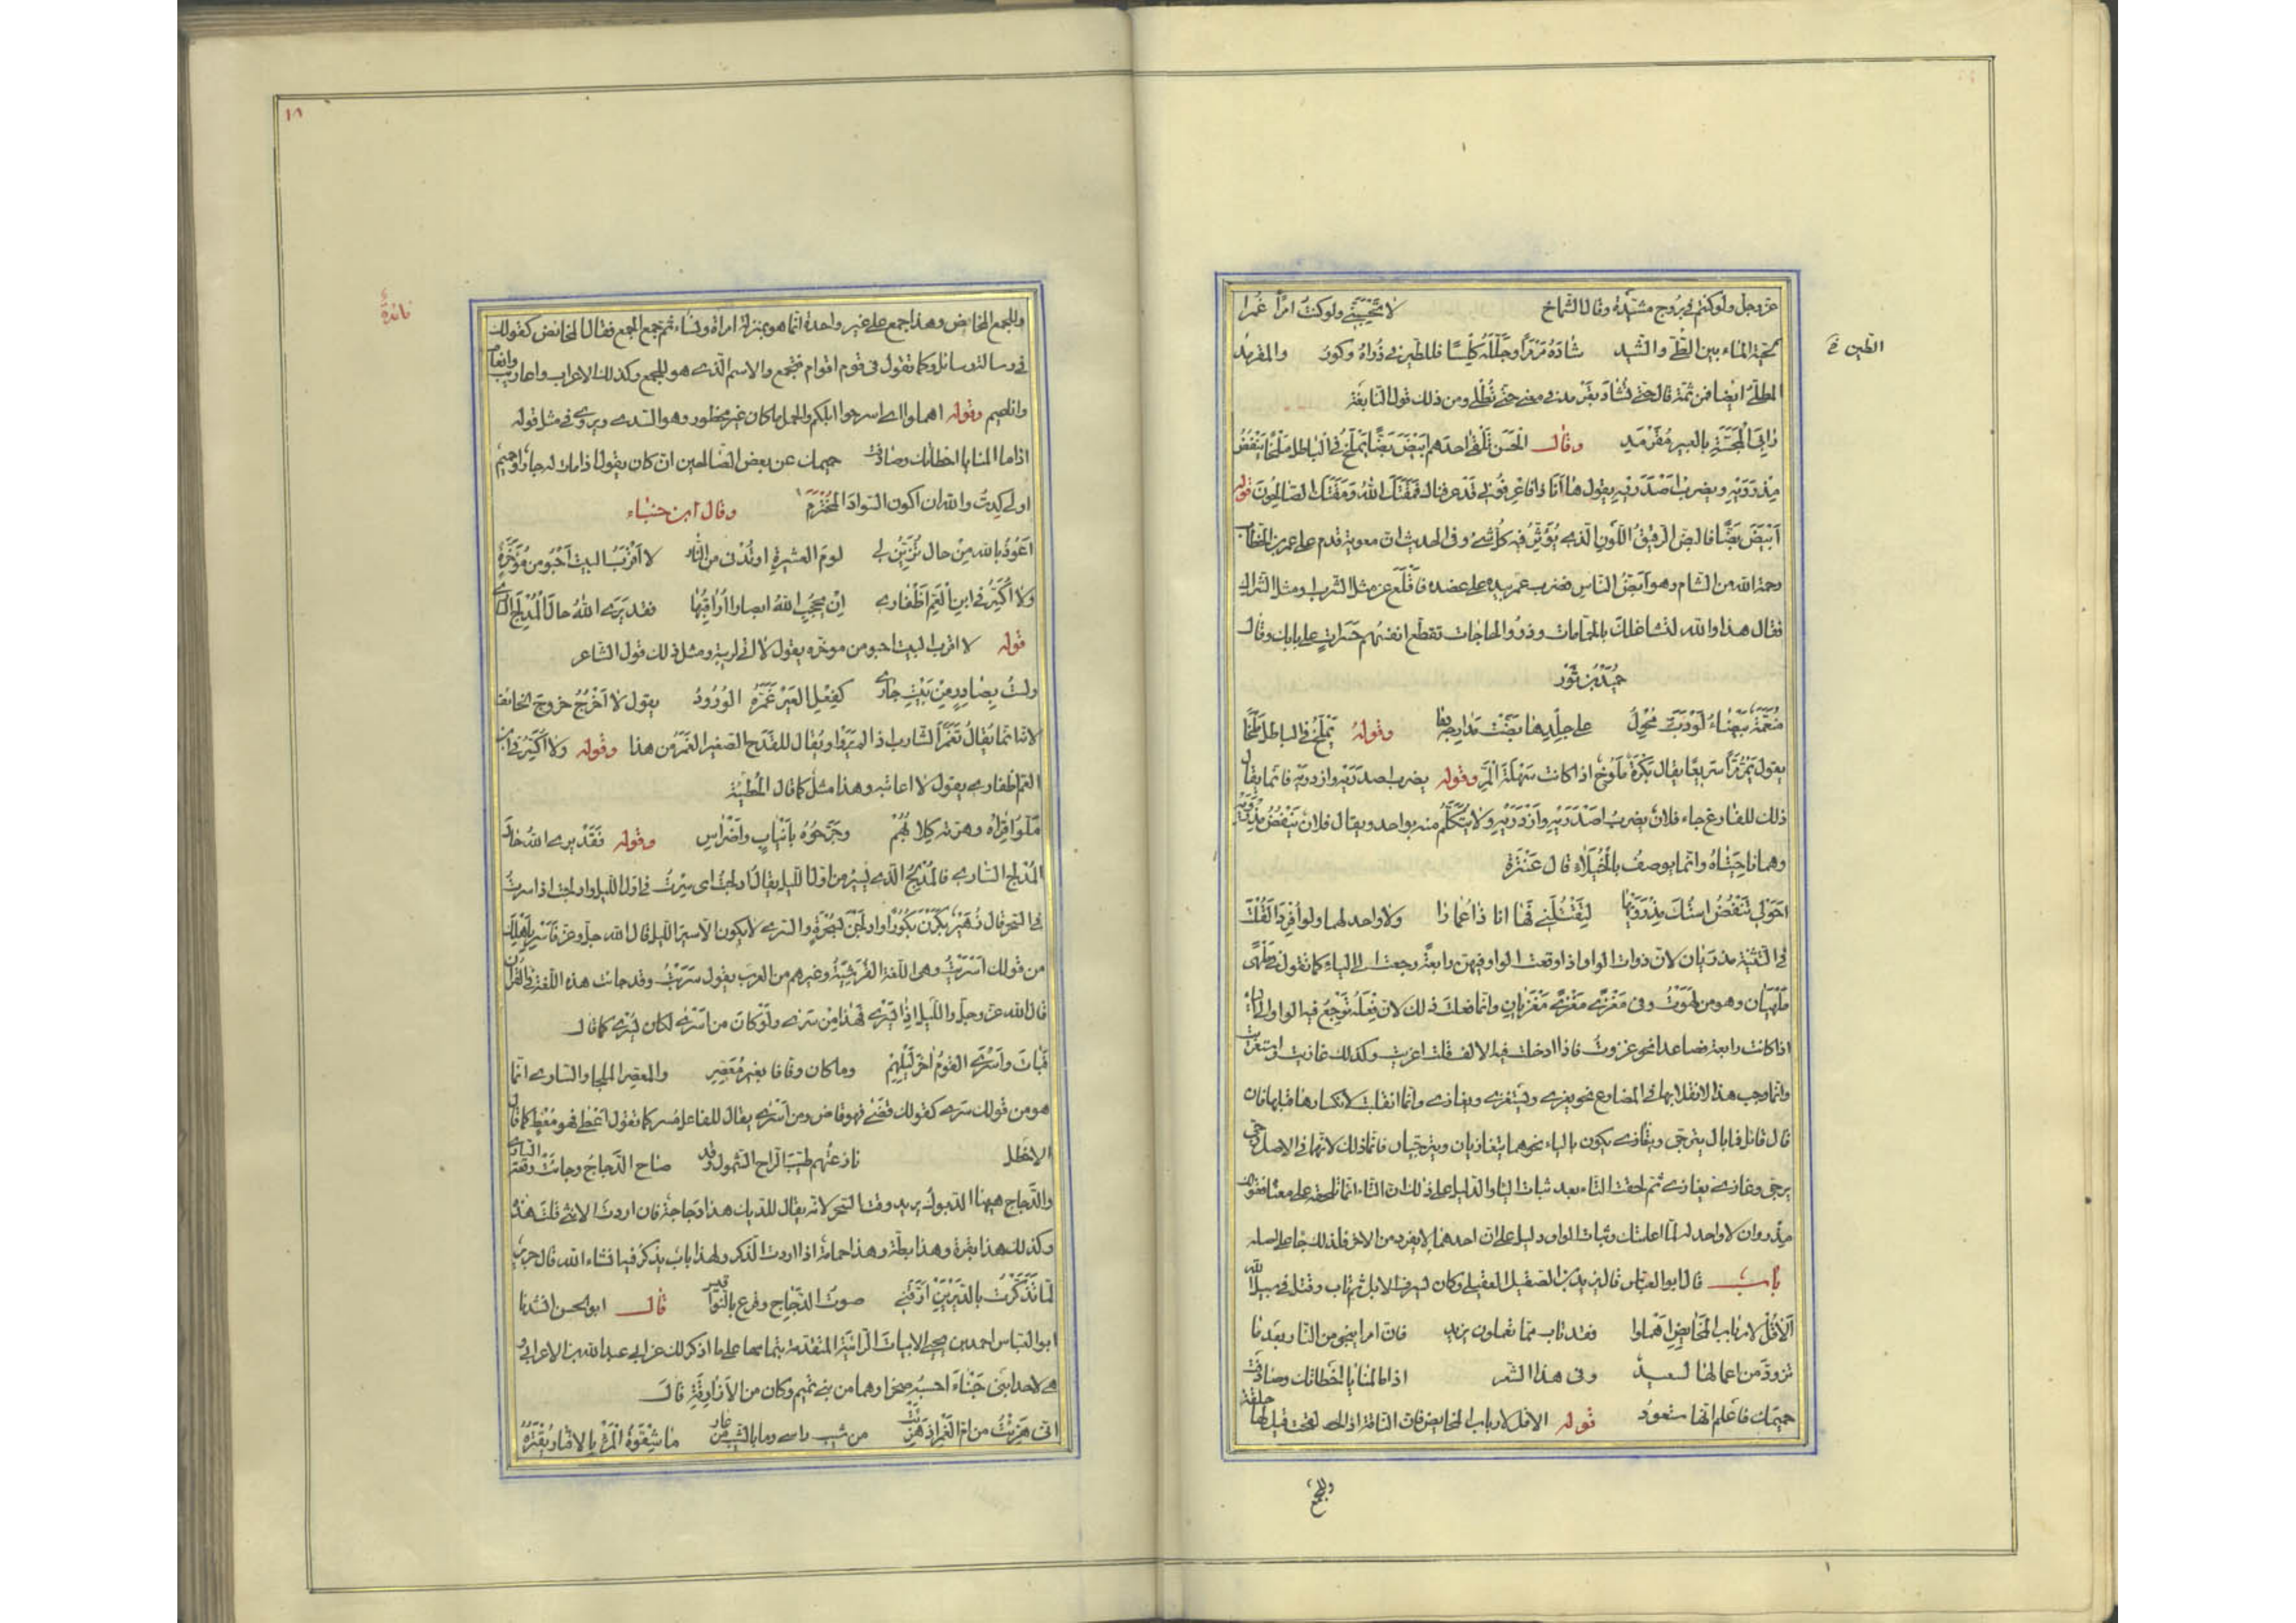 عز وجل ولو كنتم في بروج مشيّدة وقال الشماخ لا تحسبنّي ولو كنت امرأ غمرا
كحيّة الماء بين الطّي والشيد شاده مرمرا وجلّله كلسا فللطير في ذراه وكور والمقرمد
الطين في
المطلى ايضا فمن ثمة قال حتى تشاد بقرمد في معنى حتى تُطلى ومن ذلك قول النابغة
رابى المجسّة بالعبير مقرمد وقال الحسن تلقى احدهم ابيض بضّا يملخ في الباطل ملخا ينفض
مذرويه ويضرب اصدريه يقول ها انا ذا فاعرفوني قد عرفناك فمقتك الله ومقتك الصالحون قوله
ابيض بضّا فالبض الرقيق اللون الذي يؤثّر فيه كل شيء وفي الحديث ان معوية قدم على عمر بن الخطاب
رحمة الله من الشام وهو ابضّ الناس فضرب عمر بيده على عضده فاقلع عن مثل الشرب او مثل الشراك
فقال هذا والله لتشاغلك بالحمامات وذوو الحاجات تقطّع انفسهم حسرات على بابك وقال
حميد بن ثور
منعّمة بيضاء لو دبّ محول على جلدها بضّت مدارجه وقوله يملخ في الباطل ملخا
يقول يمرّ مرّا سريعا يقال بكرة ملوخ اذا كانت سهلة المرّ وقوله يضرب اصدريه وازدريه فانما يقال
ذلك للفارغ جاء فلان يضرب اصدريه وازدريه ولا يتكلّم منه بواحد ويقال فلان ينفض مذرويه
وهما ناحيتاه وانما يوصف بالخيلاء قال عنترة
احولي تنفض استك مذرويها لتقتلني فها انا ذا عمارا ولا واحد لهما ولو افردا لقلت
في التثنية مذريان لان ذوات الواو اذا وقعت الواو فيهن رابعة رجعت الى الياء كما تقول في ملهى
ملهيان وهو من لهوت وفي مغزى مغزى مغزيان وانما فعلت ذلك لان فعله ترجع فيه الواو الى الياء
اذا كانت رابعة فصاعدا نحو غزوت فاذا ادخلت فيه الالف قلت اغزيت وكذلك غازيت واستغزيت
وانما وجب هذا الانقلابها في المضارع نحو يغزي ويستغزي ويغازي وانما انقلبت لانكسار ما قبلها فان
قال قائل فما بال يترجى ويتغازى يكون بالياء نحو هما يتغازيان ويترجيان فانما ذلك لانهما في الاصل رجى
يرجى وغازى يغازي ثم لحقت التاء بعد ثبات الياء والدليل على ذلك ان التاء انما تلحقه على معناه فقولك
مذروان لا واحد له لما اعلمتك وثبات الواو دليل على ان احدهما لا يفرد من الاخر فلذلك جاء على اصله
باب قال ابو العباس قال يزيد بن الصقيل العقيلي وكان يسرق الابل ثم تاب وقتل في سبيل الله
الا قل لارباب المخائض اهملوا فقد تاب مما تعلمون يزيد فان امرا ينجو من النار بعد ما
تزوّد من اعمالها لسعيد وفي هذا الشعر اذا ما المنايا اخطأتك وصادفت
حميمك فاعلم انها ستعود قوله الا قل لارباب المخائض فان الناقة اذا لقحت قيل لها خلفة
وللجمع
١٨
وللجمع المخائض وهذا جمع على غير واحدة انما هو بمنزلة امراة ونساء ثم جمع الجمع فقال المخائض كقولك
فائدة
في رسالة رسائل وكما تقول في قوم اقوام فتجمع والاسم الذي هو للجمع وكذلك الاعراب واعاريب وانعام
واناعيم وقوله اهملوا اي اسرحوا ابلكم والهمل ما كان غير محظور وهو السدى ويروى في مثل قوله
اذا ما المنايا اخطأتك وصادفت حميمك عن بعض الصالحين انه كان يقول اذا مات له جار او حميم
اولى لي كدت والله ان اكون السواد المخترم وقال ابن حبناء
اعوذ بالله من حال تزيّن لي لوم العشيرة او تدني من النار لا اقرب البيت احبو من مؤخّره
ولا اكسّر في ابن العم اظفاري ان يحجب الله ابصارا اراقبها فقد يرى الله حال المدلج الساري
قوله لا اقرب البيت احبو من مؤخره يقول لا اتي لريبة ومثل ذلك قول الشاعر
ولست بصادر من بيت جاري كفعل العير غمّره الورود يقول لا اخرج خروج الخائف
لانه انما يقال تغمّر الشارب اذا لم يرو او يقال للقدح الصغير الغمر من هذا وقوله ولا اكسّر في ابن
العم اظفاري يقول لا اعاتبه وهذا مثل كما قال الحطيئة
ملّوا قراه وهرّته كلابهم وجرّحوه بانياب واضراس وقوله فقد يرى الله حال
المدلج الساري فالمدلج الذي يسير من اول الليل يقال ادلجت اي سرت في اول الليل وادلجت اذا سرت
في السحر قال زهير بكرن بكورا وادلجن بسحرة والسرى لا يكون الا سير الليل قال الله جل وعز فاسر باهلك
من قولك اسريت وهي اللغة القرشيّة وغيرهم من العرب يقول سريت وقد جاءت هذه اللغة في القرآن
قال الله عز وجل والليل اذا يسري فهذا من سرى ولو كان من اسرى لكان يُسري كما قال
فبات واسرى القوم اخر ليلهم وما كان وقّافا بغير معصر والمعصر الملجا والساري انما
هو من قولك سرى كقولك قضى فهو قاض ومن اسرى يقال للفاعل مُسر كما تقول اعطى فهو معط كما قال
الاخطل نازعتهم طيب الراح الشمول وقد صاح الدجاج وحانت وقعة الساري
والدجاج ههنا الديوك يريد وقت السحر لانه يقال للديك هذا دجاجة فان اردت الانثى قلت هذه
وكذلك هذا بقرة وهذا بطّة وهذا حمامة اذا اردت الذكر ولهذا باب يذكر فيه انشاء الله قال جرير
لما تذكّرت بالديرين ارّقني صوت الدجاج وقرع بالنواقيس قال ابو الحسن انشدنا
ابو العباس احمد بن يحيى الابيات الرائية المتقدمة بتمامها على ما اذكر لك عن ابي عبد الله بن الاعرابي
هي لاحد ابني حبناء احسبه صخرا وهما من بني تميم وكان من الازارقة قال
اني هزئت من ام الغمر اذ هزئت من شيب راسي وما بالشيب من عار ما شقوة المرء بالاقتار يقتره